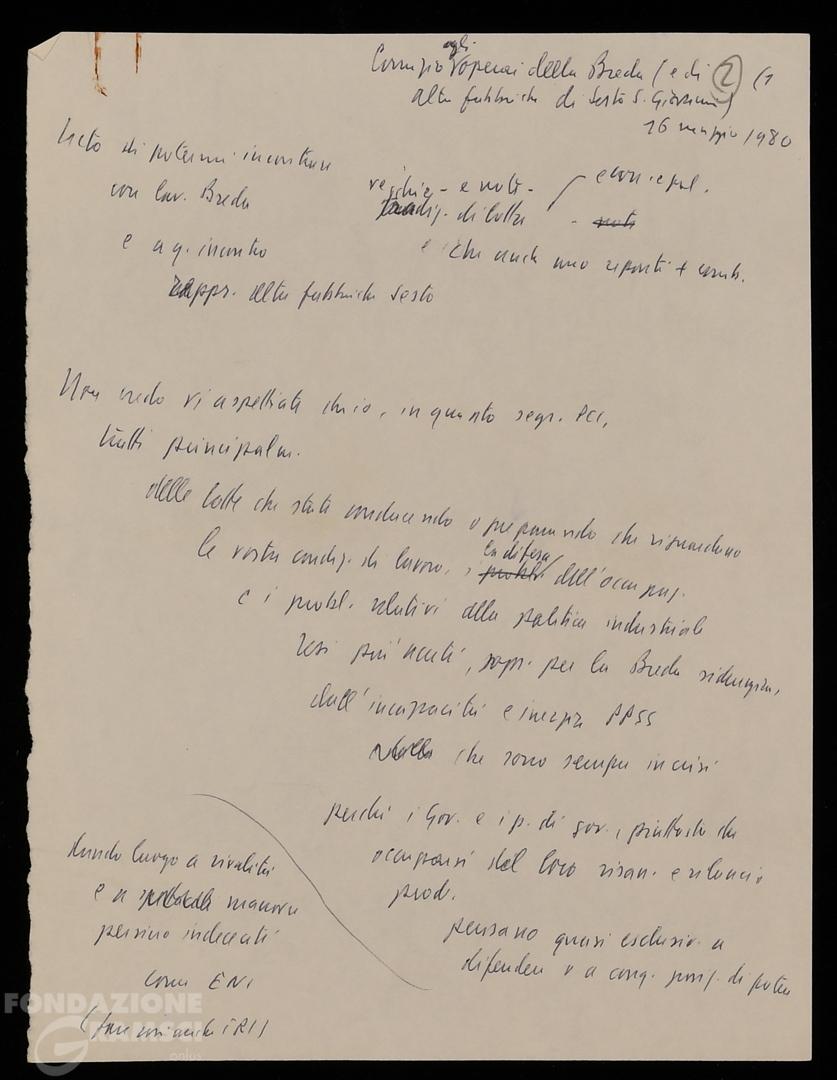 Comizio agli operai della Breda (e di 2 (1
altre fabbriche di Sesto S. Giovanni)
16 maggio 1980
Lieto di potermi incontrare
con lav. Breda
e a q. incontro
rappr. altre fabbriche Sesto
vecchie - e note -
tradiz. di lotta
econ. e pol.
e che anch
+ comb.
Non credo vi aspettiate ch'io, in quanto segr. PCI,
tratti principalm.
delle lotte che state conducendo o preparando che riguardano
le vostre condiz. di lavoro, la difesa dell'occupaz.
e i probl. relativi alla politica industriale
resi più acuti, sopr. per la Breda siderurgica,
dall'incapacità e inerzia PPSS
che sono sempre in crisi
perché i Gov. e i p. di gov., piuttosto che
occuparsi del loro risan. e rilancio
prod.
pensano quasi esclusiv. a
difendere o a conq. posiz. di potere
dando luogo a rivalità
e a manovre
persino indecenti
come ENI
(forse ora anche IRI)
FONDAZIONE
GRAMSCI
onlus